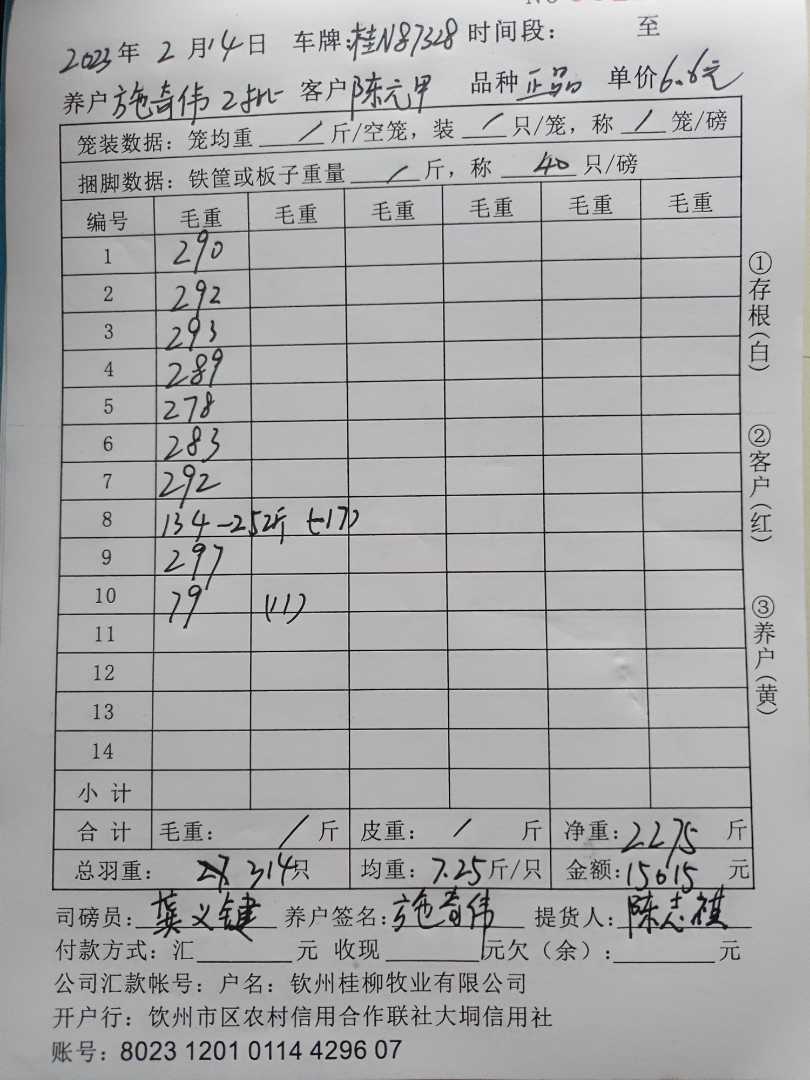 2023年 2月14日 车牌:桂N87328 时间段: 至
养户 施奇伟 2批 客户 陈元甲 品种 正品 单价6.6元
笼装数据: 笼均重 / 斤/空笼, 装 / 只/笼, 称 / 笼/磅
捆脚数据: 铁筐或板子重量 / 斤, 称 40 只/磅
编号 毛重 毛重 毛重 毛重 毛重 毛重
1 290
2 292
3 293
4 289
5 278
6 283
7 292
8 134-252斤 (-17)
9 297
10 79 (11)
11
12
13
14
小计
合计 毛重: / 斤 皮重: / 斤 净重:2275 斤
总羽重: 314只 均重: 7.25斤/只 金额:15015 元
司磅员: 龚义键 养户签名: 施奇伟 提货人: 陈志祺
付款方式: 汇 元 收现 元欠(余): 元
公司汇款帐号: 户名: 钦州桂柳牧业有限公司
开户行: 钦州市区农村信用合作联社大垌信用社
账号: 8023 1201 0114 4296 07
①存根(白)
②客户(红)
③养户(黄)